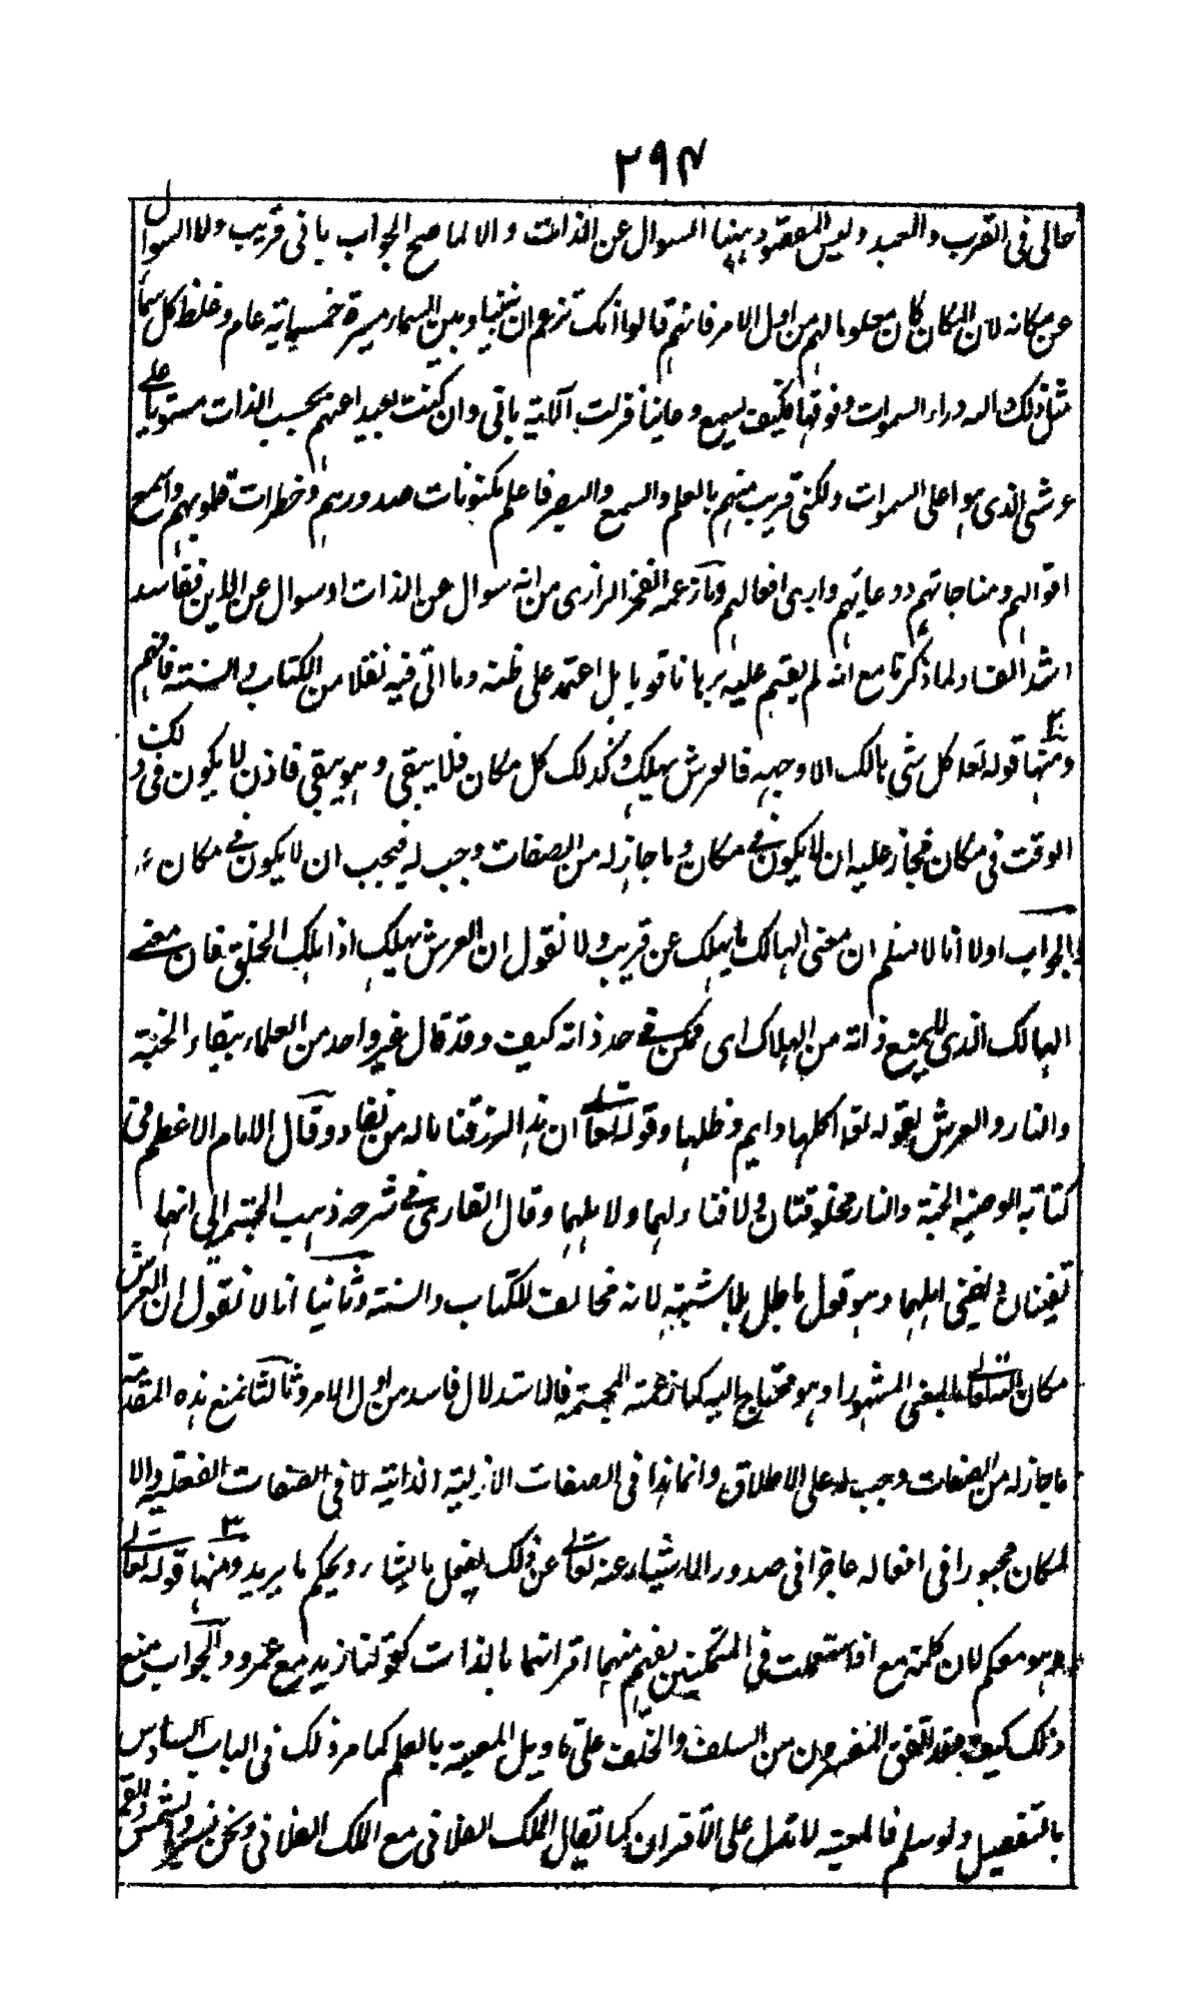 ٢٩٤
حالى فى القرب والبعد وليس المقصود ههنا السوال عن الذات والا لما صح الجواب بانى قريب ولا السوال
عن مكانه لان المكان كان معلوما لهم من اول الامر فانهم قالوا انك تزعم ان بيننا وبين السماء مسيرة خمسماية عام وغلظ كل سماء
مثل ذلك والله وراء السموات وفوقها فكيف يسمع دعاينا فنزلت الآية بانى وان كنت بعيدا عنهم بحسب الذات مستويا على
عرشى الذى هو اعلى السموات ولكنى قريب منهم بالعلم والسمع والبصر فاعلم مكنونات صدورهم وخطرات قلوبهم واسمع
اقوالهم ومناجاتهم ودعايهم وارى افعالهم وما زعمه الفخر الرازى من انه سوال عن الذات او سوال عن الاين ففاسد
اشد الفساد لما ذكرنا مع انه لم يقم عليه برهانا قويا بل اعتمد على ظنه وما اتى فيه نقلا من الكتاب والسنته فافهم
ومنها قوله تعا كل شى هالك الا وجهه فالعرش يهلك وكذلك كل مكان فلا يبقى وهو يبقى فاذن لا يكون فى ذلك
الوقت فى مكان فجاز عليه ان لا يكون فى مكان وما جاز له من الصفات وجب له فيجب ان لا يكون فى مكان
والجواب اولا انا لا نسلم ان معنى الهالك ما يهلك عن قريب ولا نقول ان العرش يهلك اذا هلك الخلق فان معنى
الهالك الذى لا يمتنع ذاته من الهلاك اى ممكن فى حد ذاته كيف وقد قال غير واحد من العلماء ببقاء الجنة
والنار والعرش لقوله تعا اكلها دايم وظلها وقوله تعالى ان هذا لرزقنا ماله من نفاد وقال الامام الاعظم فى
كتابه الوصية الجنة والنار مخلوقتان ولا فناء لهما ولا هلهما وقال القارى فى شرحه ذهب الجهمية الى انها
تفنيان ويفنى اهلهما وهو قول باطل بلا شبهته لانه مخالف للكتاب والسنته وثانيا انا لا نقول ان العرش
مكان الله تعالى بالمعنى المشهور او هو محتاج اليه كما زعمته المجسمة فالاستدلال فاسد من اول الامر وثالثا نمنع هذه المقدمة
ما جاز له من الصفات وجب له على الاطلاق وانما هذا فى الصفات الازلية الذاتية لا فى الصفات الفعلية والا
لكان مجبورا فى افعاله عاجزا فى صدور الاشياء عنه تعالى عن ذلك يفعل ما يشاء ويحكم ما يريد ومنها قوله تعالى
وهو معكم لان كلمة مع اذا استعملت فى المتمكنين يفهم منهما اقترانهما بالذات كقولنا زيد مع عمرو والجواب منع
ذلك كيف وقد اتفق المفسرون من السلف والخلف على تاويل المعية بالعلم كما مر ذلك فى الباب السادس
بالتفصيل ولو سلم فالمعية لا تدل على الاقتران كما تقال الملك الفلانى مع الملك الفلانى ونحن نسير والشمس والقمر